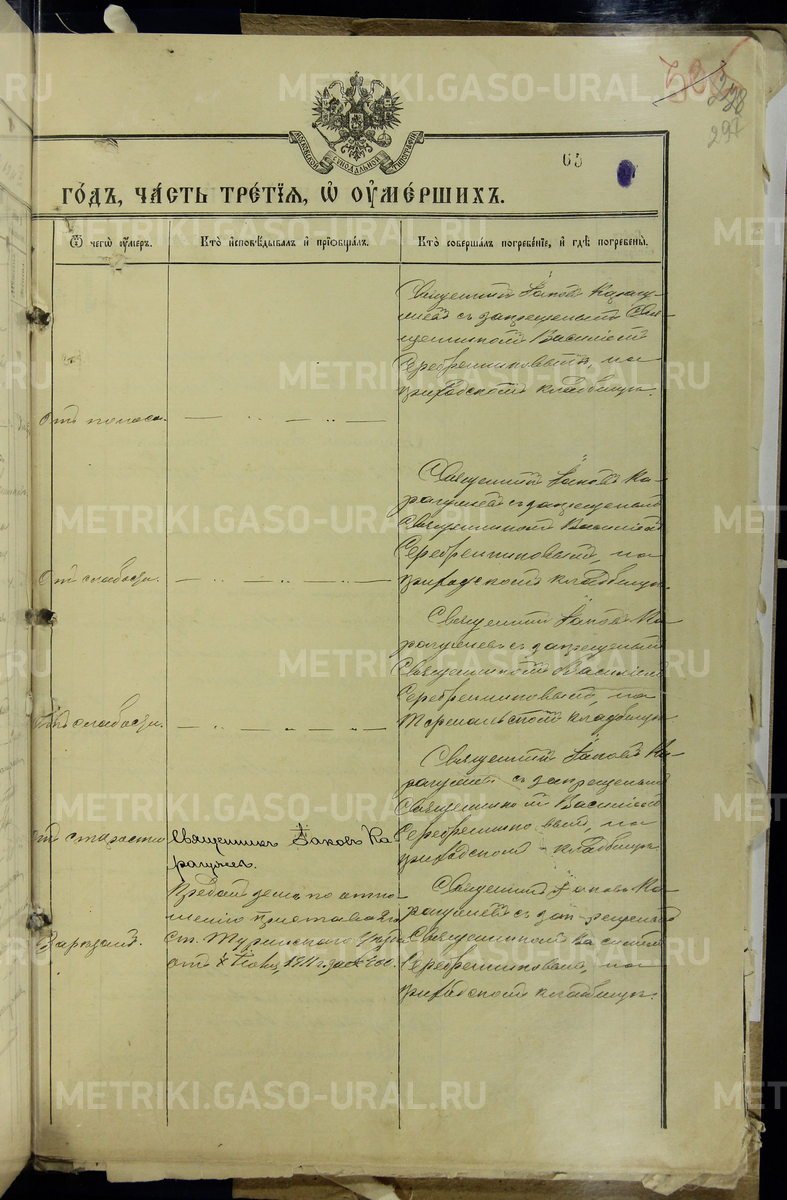 328
297
63
МОСКОВСКОЙ СѴНОДАЛЬНОЙ ТИПОГРАФІИ
ГО́ДЪ, ЧА́СТЬ ТРЕ́ТЇѦ, Ѡ҆ ОУ҆МЕ́РШИХЪ.
Ѿ чегѡ̀ оу҆́меръ.
Кто̀ и҆сповѣ́дывалъ и҆ прїѡбща́лъ.
Кто̀ соверша́лъ погребе́нїе, и҆ гдѣ̀ погребены̀.
Отъ поноса.
Священникъ Іаковъ
съ запрещеннымъ Свя-
щенникомъ Василіемъ
Серебренниковымъ, на
приходскомъ кладбищѣ.
Отъ слабости.
Священникъ Іаковъ Ка-
съ запрещеннымъ
Священникомъ Василіемъ
Серебренниковымъ, на
приходскомъ кладбищѣ.
Отъ слабости.
Священникъ Іаковъ Ка-
съ запрещеннымъ
Священникомъ Василіемъ
Серебренниковымъ, на
кладбищѣ.
Отъ старости
Священникъ Іаковъ Ка-
Священникъ Іаковъ Ка-
съ запрещеннымъ
Священникомъ Василіемъ
Серебренниковымъ, на
приходскомъ кладбищѣ.
Преданъ землѣ по отно-
шенію Пристава 2го
Ст. Туринскаго Уѣзда
1911 г. за №
Священникъ Іаковъ Ка-
съ запрещеннымъ
Священникомъ Василіемъ
Серебренниковымъ, на
приходскомъ кладбищѣ.
METRIKI.GASO-URAL.RU